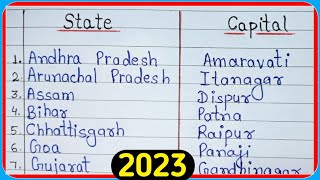 State Capital
1. Andhra Pradesh Amaravati
2. Arunachal Pradesh Itanagar
3. Assam Dispur
4. Bihar Patna
5. Chhattisgarh Raipur
6. Goa Panaji
7. Gujarat Gandhinagar
2023